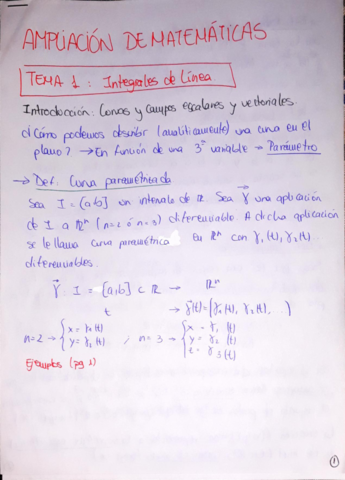 AMPLIACIÓN DE MATEMÁTICAS
TEMA 1: Integrales de Línea
Introducción: Curvas y campos escalares y vectoriales.
¿Cómo podemos describir (analíticamente) una curva en el
plano? → En función de una 3ª variable → Parámetro
→ Def: Curva parametrizada
Sea I = [a,b] un intervalo de ℝ. Sea γ⃗ una aplicación
de I a ℝⁿ (n=2 ó n=3) diferenciable. A dicha aplicación
se le llama curva paramétrica en ℝⁿ con γ₁(t), γ₂(t)...
diferenciables.
γ⃗: I = [a,b] ⊂ ℝ → ℝⁿ
t → γ⃗(t) = (γ₁(t), γ₂(t), ... )
n=2 → { x = γ₁(t) y = γ₂(t) ; n=3 → { x = γ₁(t) y = γ₂(t) z = γ₃(t)
Ejemplos (pg 1)
1